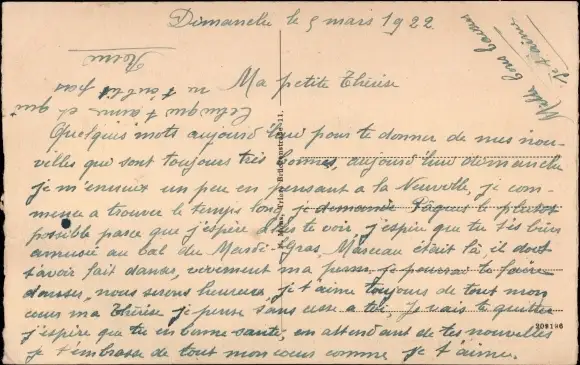 Dimanche le 5 mars 1922
Ma petite Thérèse
Quelques mots aujourd'hui pour te donner de mes nou-
velles qui sont toujours très bonnes, aujourd'hui dimanche
je m'ennuie un peu en pensant a la Neuville, je com-
mence a trouver le temps long je demande Pâques le plutot
possible parce que j'espère te voir, j'espère que tu t'es bien
amusée au bal du Mardi-Gras, Marceau était là, il doit
t'avoir fait danser, vivement ma perm je pourrai te faire
danser, nous serons heureux, je t'aime toujours de tout mon
cœur ma Thérèse je pense sans cesse a toi, Je vais te quitter
j'espère que tu es en bonne santé, en attendant de tes nouvelles
je t'embrasse de tout mon cœur comme je t'aime.
Celui qui t'aime et qui
ne t'oublie pas
Mille bons baisers
je t'aime
209196